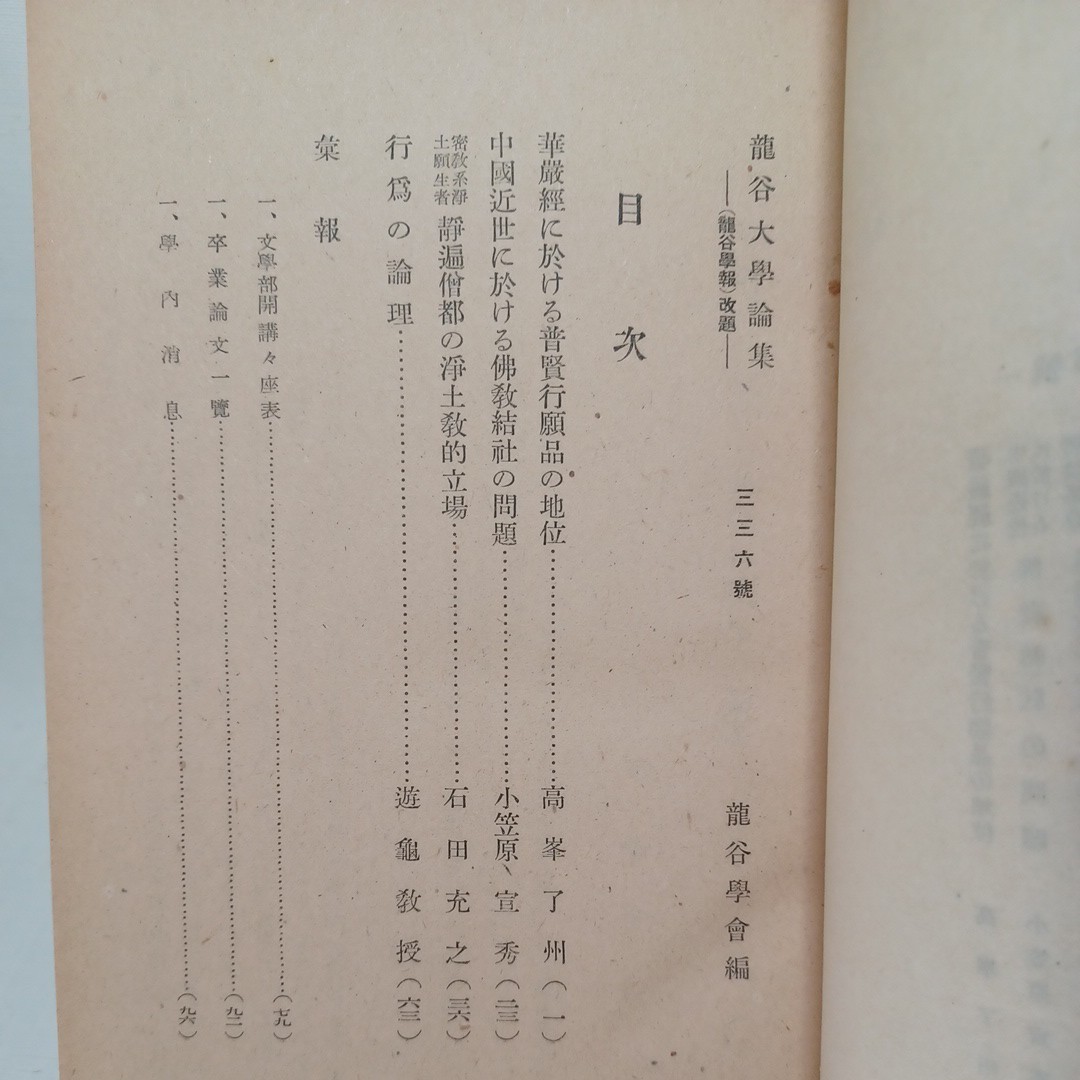 龍谷大學論集 三三六號 龍谷學會編
―(龍谷學報)改題―
目次
華嚴經に於ける普賢行願品の地位……高峯了州(一)
中國近世に於ける佛敎結社の問題……小笠原宣秀(二三)
密敎系淨土願生者 靜遍僧都の淨土敎的立場……石田充之(三六)
行爲の論理……遊龜敎授(六三)
彙報
一、文學部開講々座表……(七九)
一、卒業論文一覽……(九二)
一、學內消息……(九六)